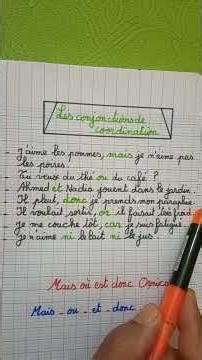 Les conjonctions de
coordination
- J'aime les pommes, mais je n'aime pas
les poires.
- Tu veux du thé ou du café ?
- Ahmed et Nadia jouent dans le jardin.
- Il pleut, donc je prends mon parapluie.
- Il voulait sortir, or il faisait trop froid.
- Je me couche tôt, car je suis fatigué.
- Je n'aime ni le lait ni le jus.
Mais où est donc
Mais - ou - et - donc